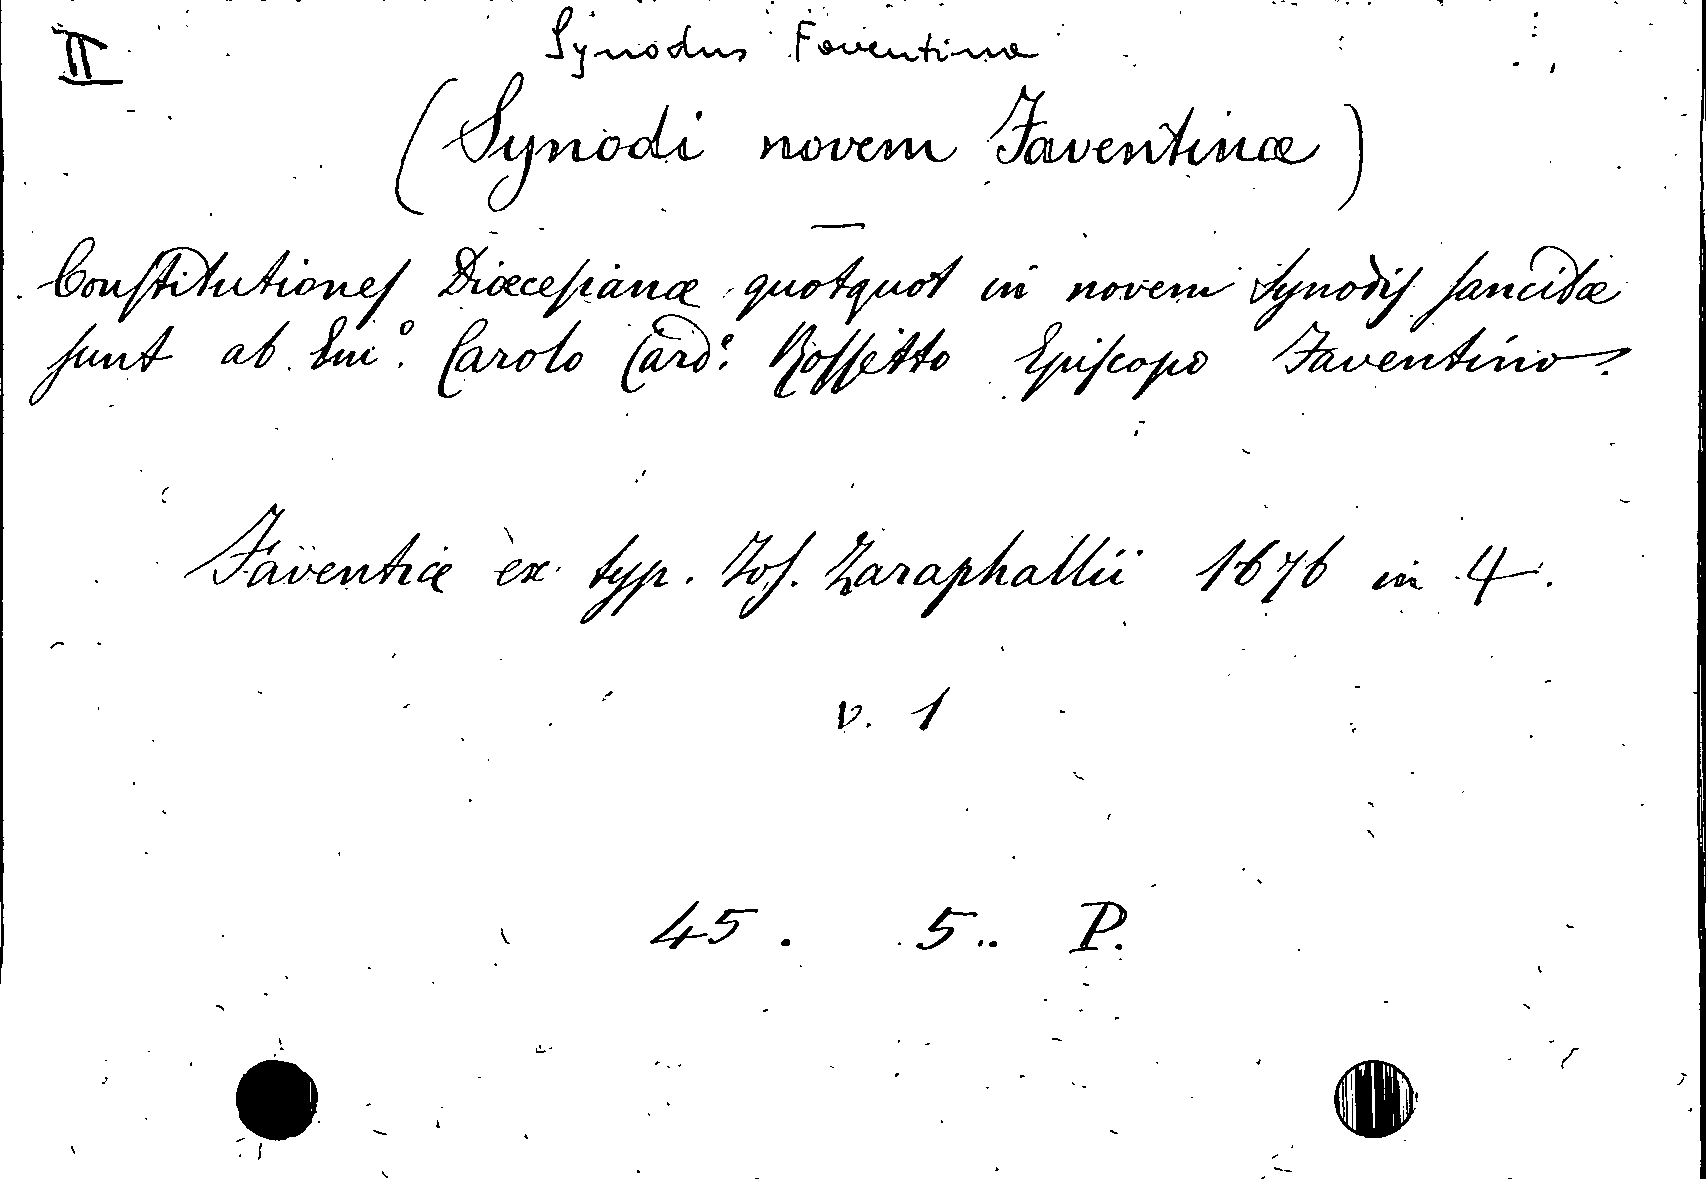 II
Synodus Faventina
(Synodi novem Faventinæ)
Conſtitutioneſ Diœceſianæ quotquot in novem Synodiſ ſancitæ
ſunt ab Emº. Carolo Cardˡ. Roſſetto Epiſcopo Faventino.
Faventiæ ex typ. Joſ. Zaraphallii 1676 in 4.
v. 1
45. 5.. P.